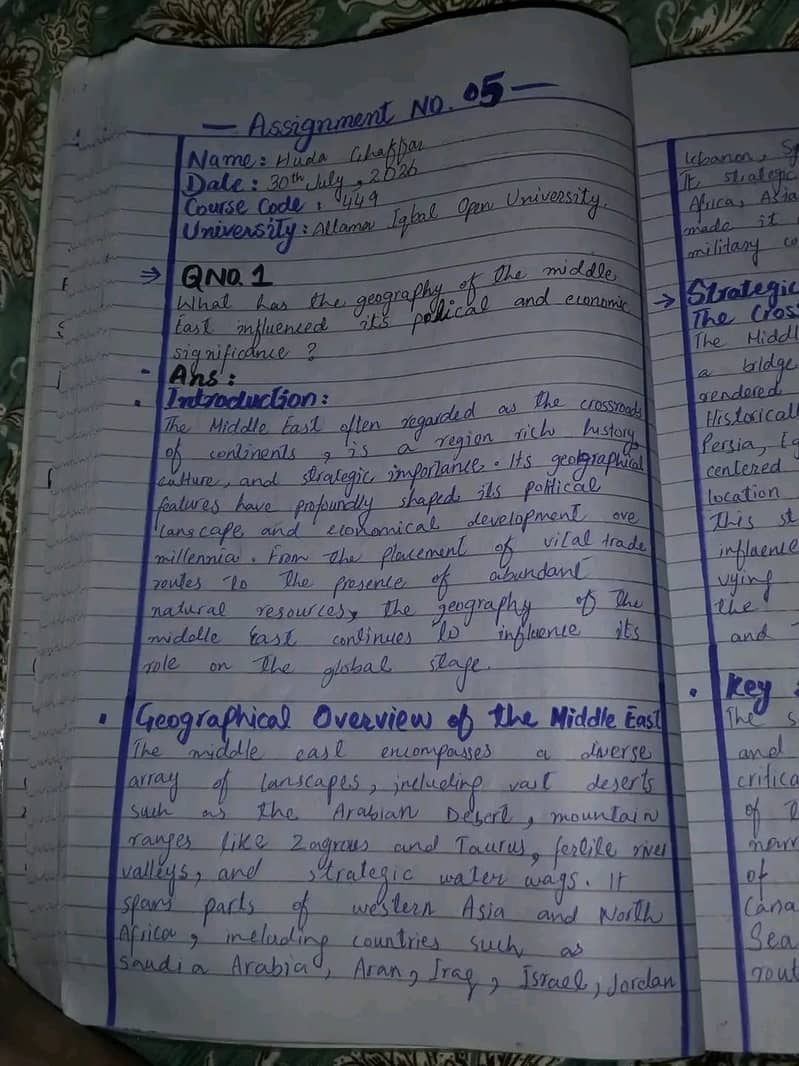 — Assignment NO. 05 —
Name: Huda Ghaffar
Date: 30th July, 2026
Course Code: 449
University: Allama Iqbal Open University.
⇒ QNO.1
What has the geography of the middle
East influenced its polical and economic
significance?
• Ans:
• Introduction:
The Middle East often regarded as the crossroads
of continents, is a region rich history
culture, and strategic importance. Its geolgraphical
features have profoundly shaped its political
lanscape, and economical development ove
millennia. From the placement of vital trade
routes to the presence of abundant
natural resources, the geography of the
middle East continues to influence its
role on the global stage.
• Geographical Overview of the Middle East
The middle east encompasses a diverse
array of lanscapes, including vast deserts
such as the Arabian Desert, mountain
ranges like Zagrous and Taurus, fertile river
valleys, and strategic water ways. It
spans parts of western Asia and North
Africa, including countries such as
Saudia Arabia, Aran, Iraq, Israel, Jordan
Lebanon, Sy
It strategic
Africa, Asia
made it
military co
→ Strategic
The Cross
The Middl
a bridge
rendered
Historicall
Persia, Eg
centered
location
This st
influence
vying
the
and
• Key
The s
and
critica
of
narr
of
Cana
Sea
rout